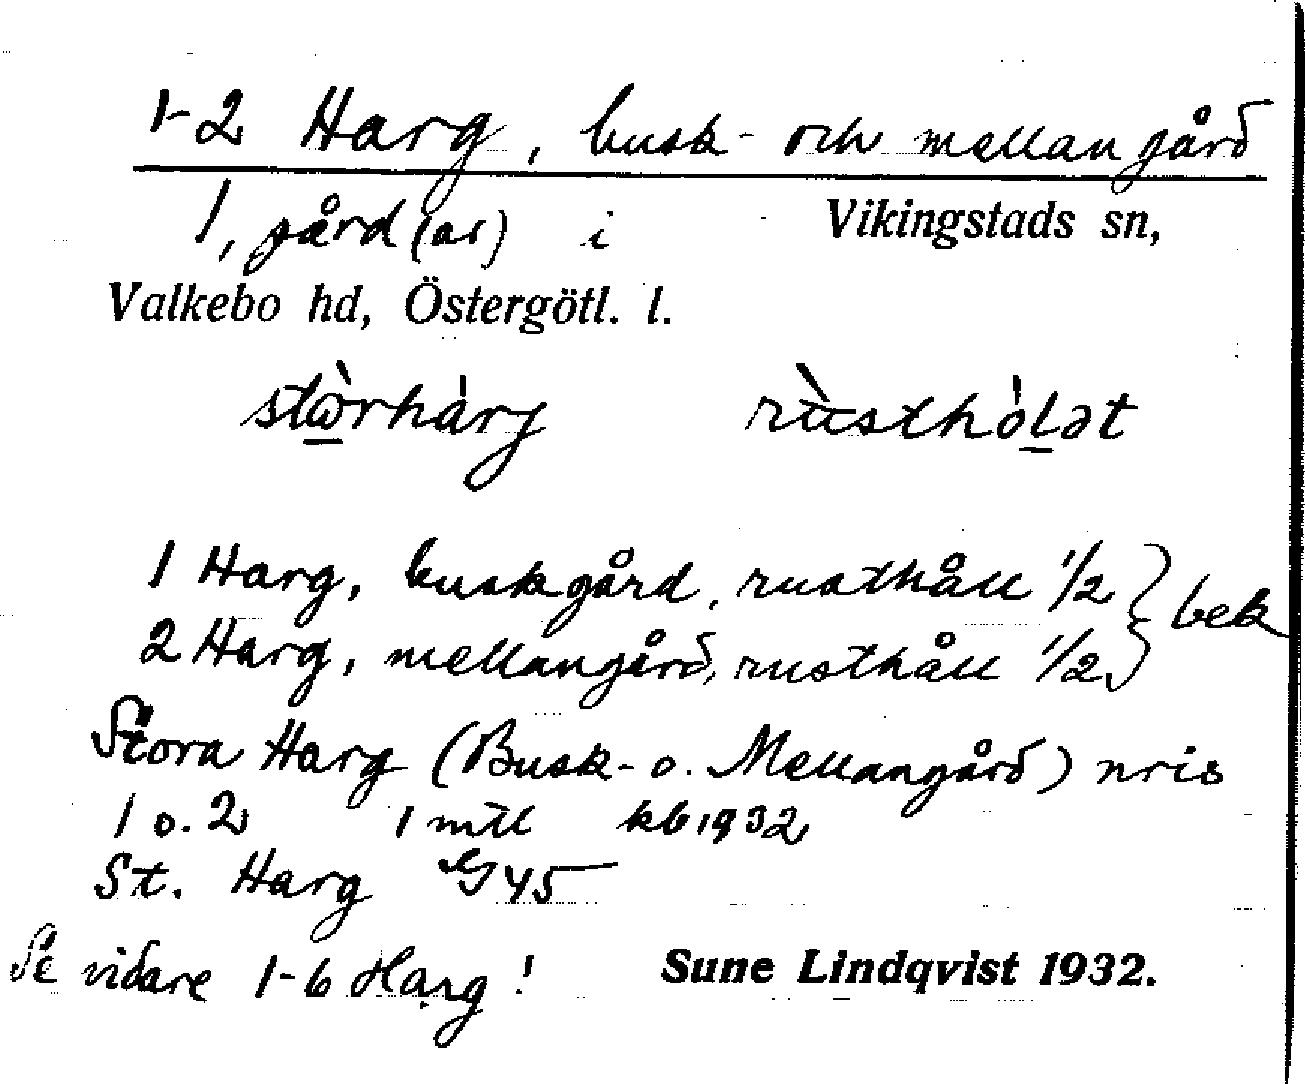 1-2 Harg, busk- och mellangård
1, gård(ar) i Vikingstads sn,
Valkebo hd, Östergötl. l.
stὼrhárj rùsthólət
1 Harg, buskgård, rusthåll 1/2 } bek
2 Harg, mellangård, rusthåll 1/2
Stora Harg (Busk- o. Mellangård) nris
1 o. 2 1 mtl kb 1932
St. Harg G45
Se vidare 1-6 Harg!
Sune Lindqvist 1932.